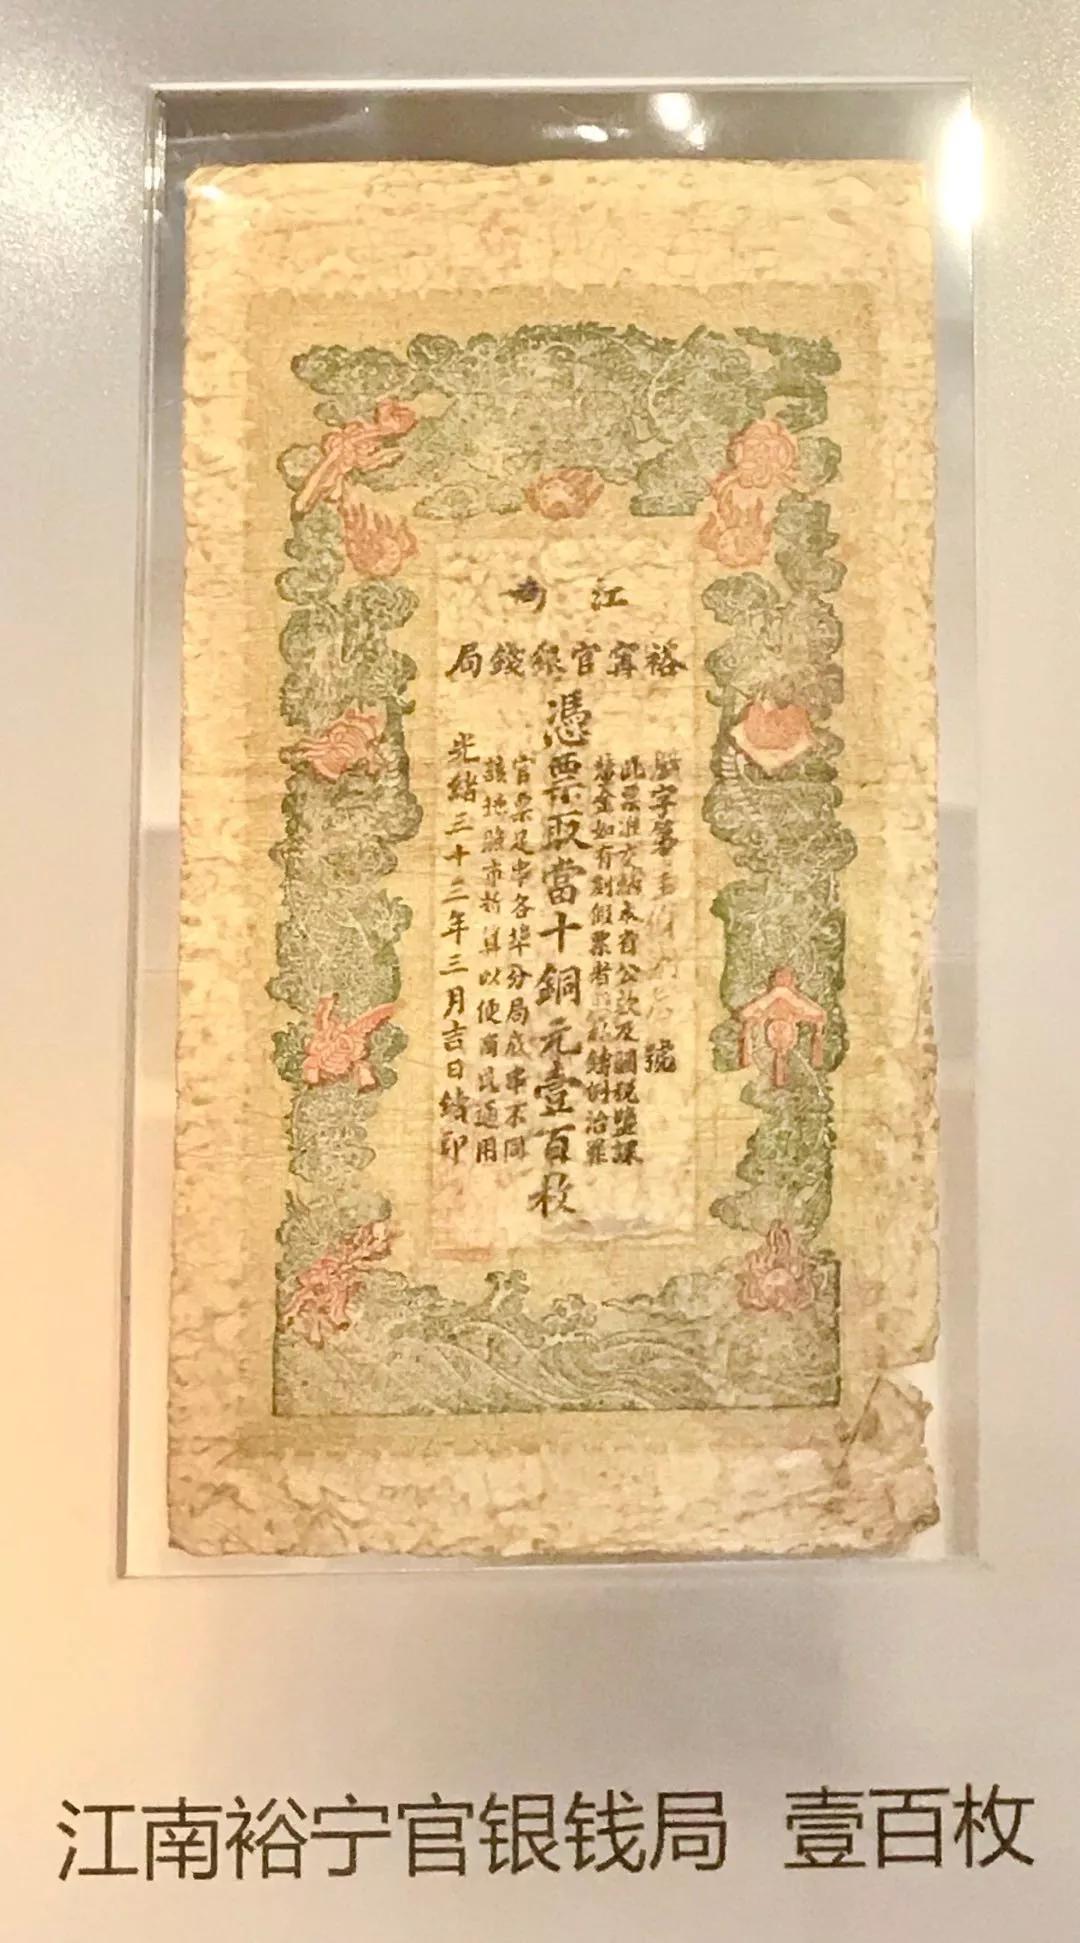 江南
裕寧官銀錢局
字第
號
此票准交納本省公款及關稅鹽課
釐金如有私刻假票者照私鑄例治罪
憑票取當十銅元壹百枚
官票足串各埠分局底串不同
該地照市折算以便商民通用
光緒三十三年三月吉日
印
江南裕宁官银钱局 壹百枚